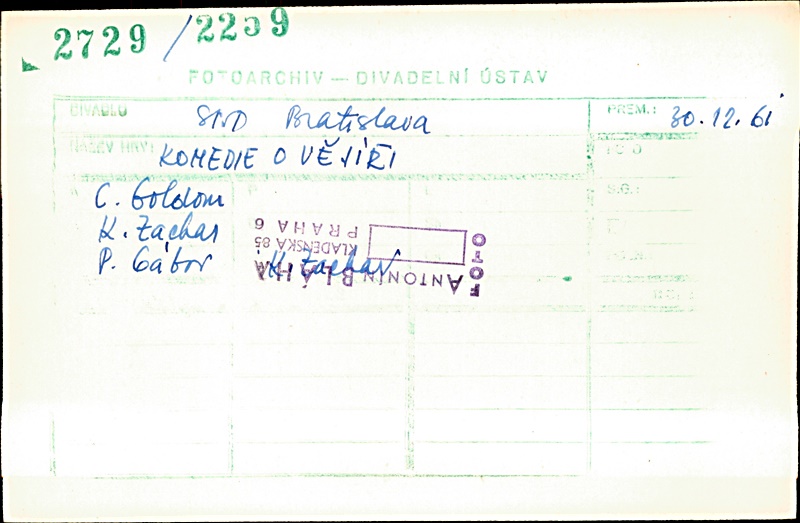 2729 / 2259
FOTOARCHIV — DIVADELNÍ ÚSTAV
DIVADLO SND Bratislava PREM.: 30.12.61
NÁZEV HRY: KOMEDIE O VĚJÍŘI FOTO
C. Goldoni S.G.:
K. Zachar
P. Gábor K. Zachar
FOTO
ANTONÍN BLÁHA
KLADENSKÁ 85
PRAHA 6